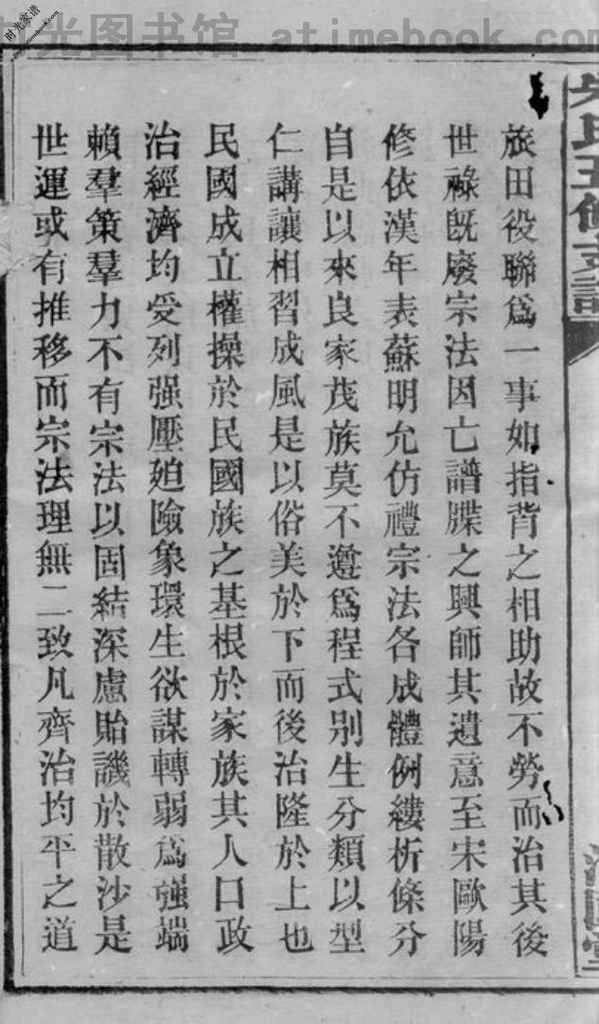 光图书馆 atimebook.com
时光家谱
氏五修支譜
旅田役聯爲一事如指背之相助故不勞而治其後
世祿旣廢宗法因亡譜牒之興師其遺意至宋歐陽
修依漢年表蘇明允仿禮宗法各成體例縷析條分
自是以來良家茂族莫不遵爲程式別生分類以型
仁講讓相習成風是以俗美於下而後治隆於上也
民國成立權操於民國族之基根於家族其人口政
治經濟均受列强壓廹險象環生欲謀轉弱爲强端
賴羣策羣力不有宗法以固結深慮貽譏於散沙是
世運或有推移而宗法理無二致凡齊治均平之道